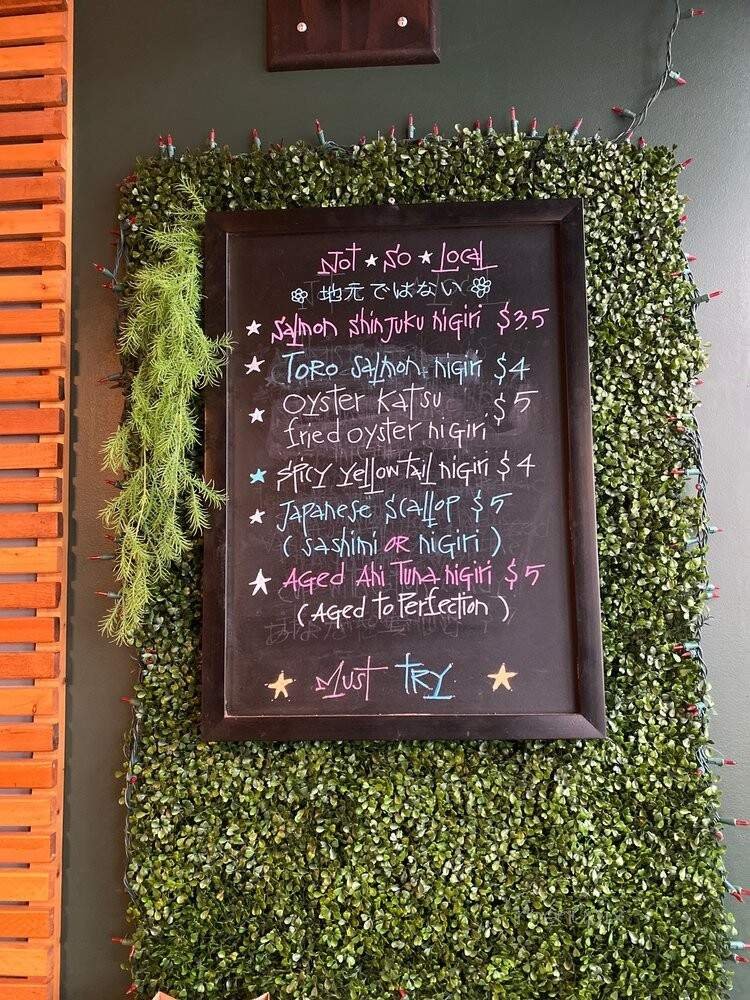 Not ★ So ★ Local
地元ではない
★ Salmon Shinjuku nigiri $3.5
★ Toro Salmon nigiri $4
★ Oyster Katsu $5
fried oyster nigiri
★ Spicy Yellowtail nigiri $4
★ Japanese Scallop $5
(Sashimi OR nigiri)
★ Aged Ahi Tuna nigiri $5
(Aged to Perfection)
★ Must TRY ★